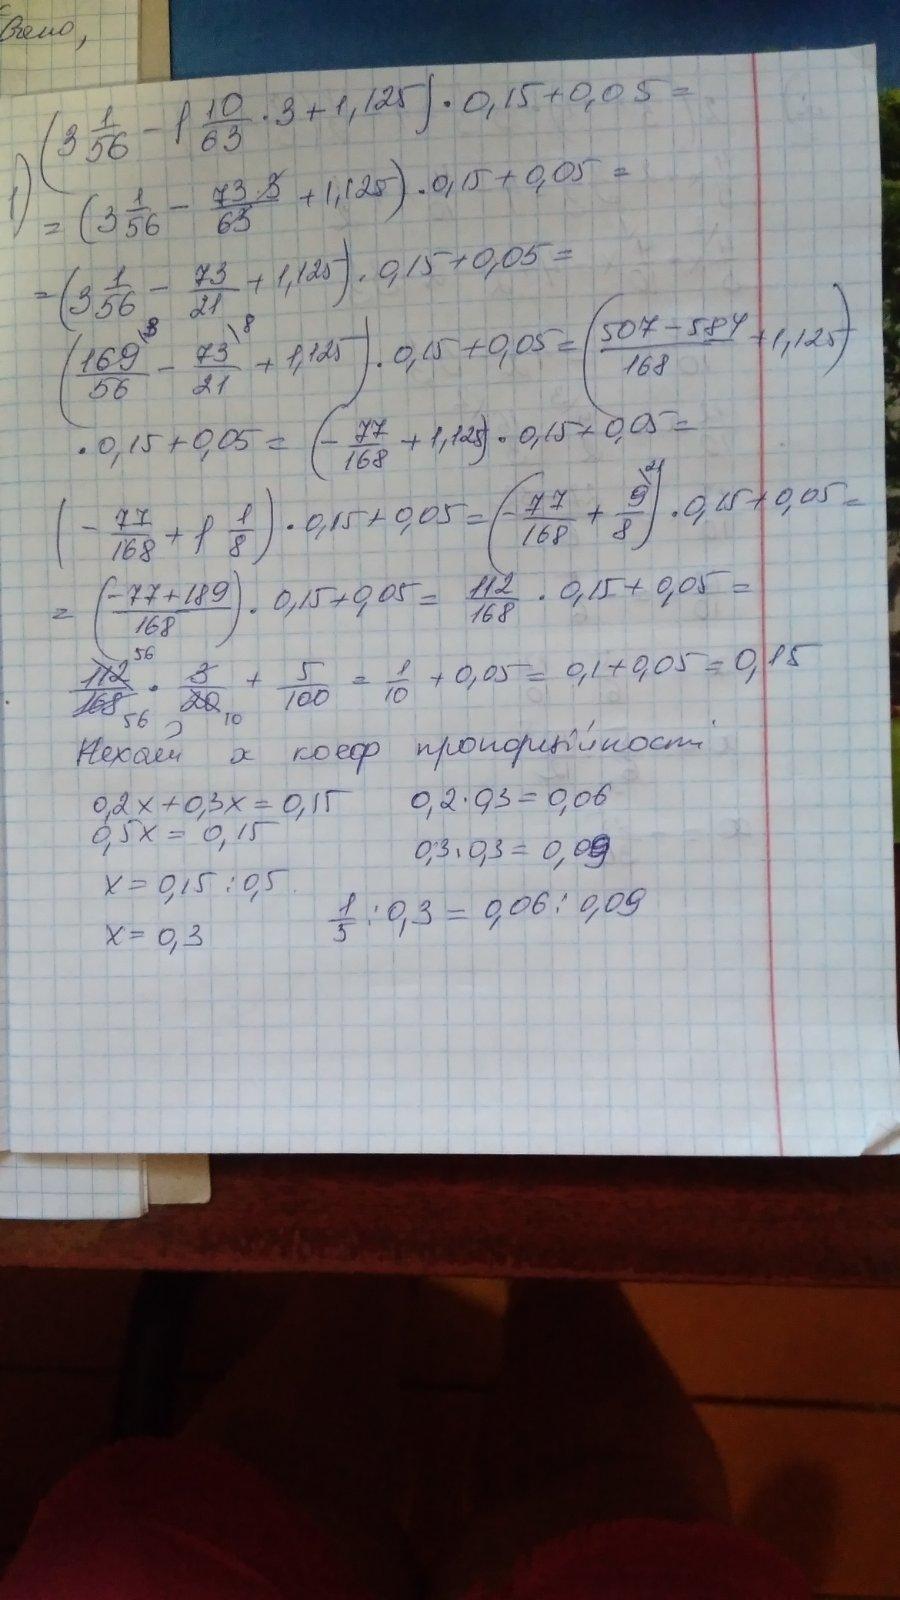 вано,
1) (3 1/56 - 1 10/63 · 3 + 1,125) · 0,15 + 0,05 =
= (3 1/56 - 73·3/63 + 1,125) · 0,15 + 0,05 =
= (3 1/56 - 73/21 + 1,125) · 0,15 + 0,05 =
(169/56 \3 - 73/21 \8 + 1,125) · 0,15 + 0,05 = ((507 - 584)/168 + 1,125)
· 0,15 + 0,05 = (- 77/168 + 1,125) · 0,15 + 0,05 =
(- 77/168 + 1 1/8) · 0,15 + 0,05 = (- 77/168 + 9/8 \21) · 0,15 + 0,05 =
= ((-77 + 189)/168) · 0,15 + 0,05 = 112/168 · 0,15 + 0,05 =
112 56/168 56 · 3/20 10 + 5/100 = 1/10 + 0,05 = 0,1 + 0,05 = 0,15
Нехай x коеф пропорційності
0,2x + 0,3x = 0,15 0,2 · 0,3 = 0,06
0,5x = 0,15 0,3 · 0,3 = 0,09
x = 0,15 : 0,5
x = 0,3 1/5 : 0,3 = 0,06 : 0,09